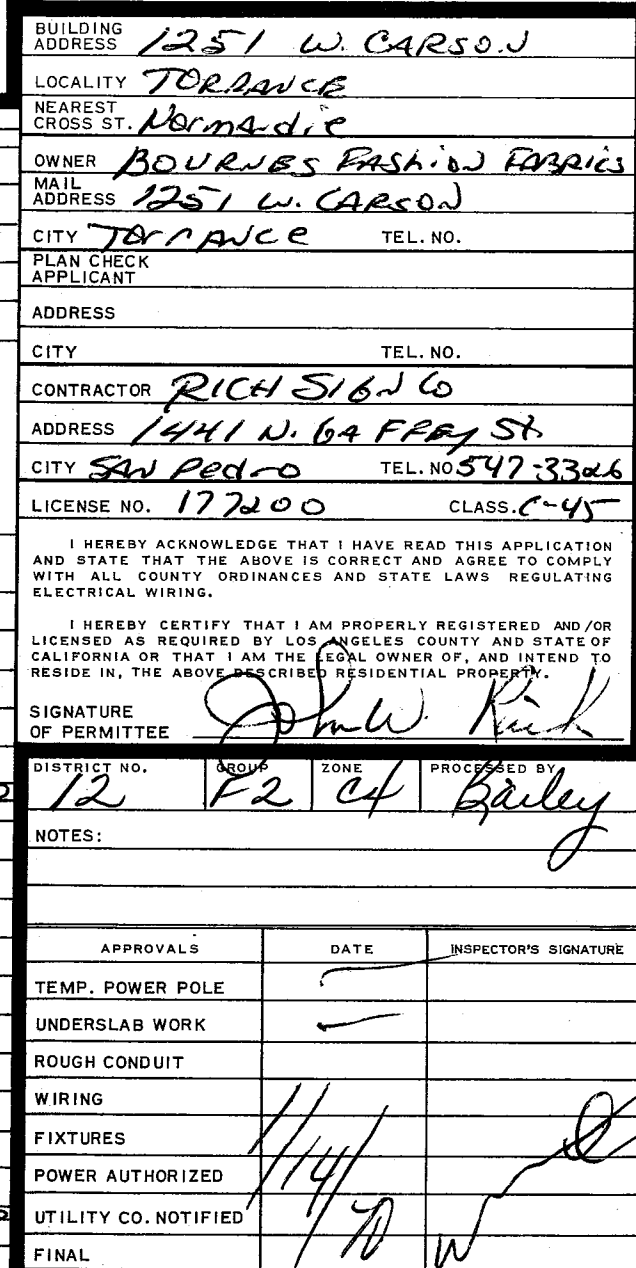 BUILDING ADDRESS 1251 W. CARSON
LOCALITY TORRANCE
NEAREST CROSS ST. Normandie
OWNER BOURNES FASHION FABRICS
MAIL ADDRESS 1251 W. CARSON
CITY TOrrANCe TEL. NO.
PLAN CHECK APPLICANT
ADDRESS
CITY TEL. NO.
CONTRACTOR RICH SIGN CO
ADDRESS 1441 N. GAFFEY St.
CITY SAN Pedro TEL. NO. 547-3326
LICENSE NO. 177200 CLASS. C-45
I HEREBY ACKNOWLEDGE THAT I HAVE READ THIS APPLICATION
AND STATE THAT THE ABOVE IS CORRECT AND AGREE TO COMPLY
WITH ALL COUNTY ORDINANCES AND STATE LAWS REGULATING
ELECTRICAL WIRING.
I HEREBY CERTIFY THAT I AM PROPERLY REGISTERED AND/OR
LICENSED AS REQUIRED BY LOS ANGELES COUNTY AND STATE OF
CALIFORNIA OR THAT I AM THE LEGAL OWNER OF, AND INTEND TO
RESIDE IN, THE ABOVE DESCRIBED RESIDENTIAL PROPERTY.
SIGNATURE OF PERMITTEE John W. Rich
DISTRICT NO. GROUP ZONE PROCESSED BY
12 F2 C4 Bailey
NOTES:
APPROVALS DATE INSPECTOR'S SIGNATURE
TEMP. POWER POLE
UNDERSLAB WORK
ROUGH CONDUIT
WIRING
FIXTURES
POWER AUTHORIZED 1/14/70
UTILITY CO. NOTIFIED
FINAL